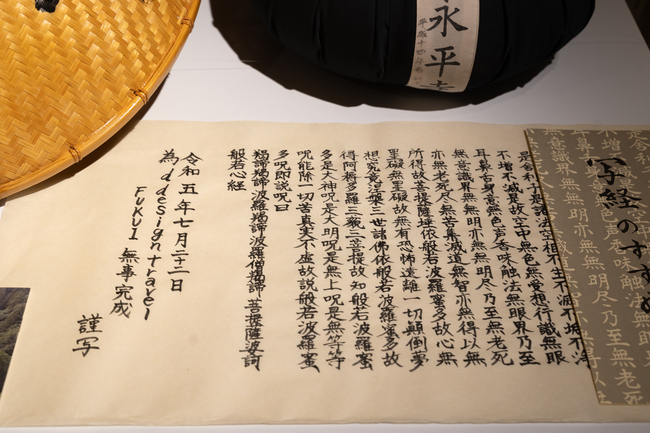 永平
写経のすすめ
是舍利子是諸法空相不生不滅不垢不浄
不増不減是故空中無色無受想行識無眼
耳鼻舌身意無色声香味触法無眼界乃至
無意識界無無明亦無無明尽乃至無老死
亦無老死尽無苦集滅道無智亦無得以無
所得故菩提薩埵依般若波羅蜜多故心無
罣礙無罣礙故無有恐怖遠離一切顛倒夢
想究竟涅槃三世諸佛依般若波羅蜜多故
得阿耨多羅三藐三菩提故知般若波羅蜜
多是大神呪是大明呪是無上呪是無等等
呪能除一切苦真実不虚故説般若波羅蜜
多呪即説呪曰
羯諦羯諦波羅羯諦波羅僧羯諦菩提薩婆訶
般若心経
令和五年七月二十二日
為 d design travel
FUKUI 無事完成
謹写